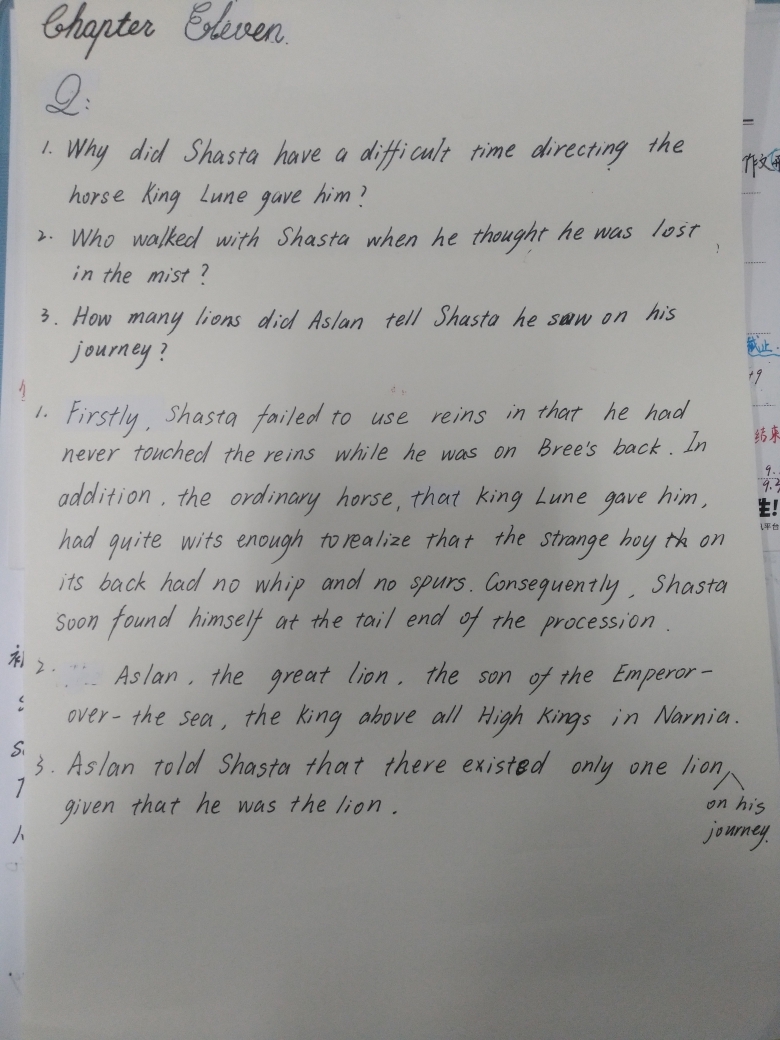 Chapter Eleven.
Q:
1. Why did Shasta have a difficult time directing the
horse King Lune gave him?
2. Who walked with Shasta when he thought he was lost
in the mist?
3. How many lions did Aslan tell Shasta he saw on his
journey?
1. Firstly, Shasta failed to use reins in that he had
never touched the reins while he was on Bree's back. In
addition, the ordinary horse, that King Lune gave him,
had quite wits enough to realize that the strange boy on
its back had no whip and no spurs. Consequently, Shasta
soon found himself at the tail end of the procession.
2. Aslan, the great lion, the son of the Emperor-
over-the sea, the King above all High Kings in Narnia.
3. Aslan told Shasta that there existed only one lion,
on his
journey.
given that he was the lion.
作文
截止
结束
生!
平台